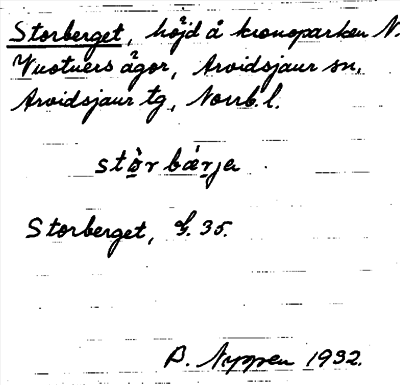 Storberget, höjd å kronoparken N.
Vuotners ägor, Arvidsjaur sn,
Arvidsjaur tg, Norrb. l.
stò̱rbǽ̱rja
Storberget, G. 35.
P. Nyppen 1932.